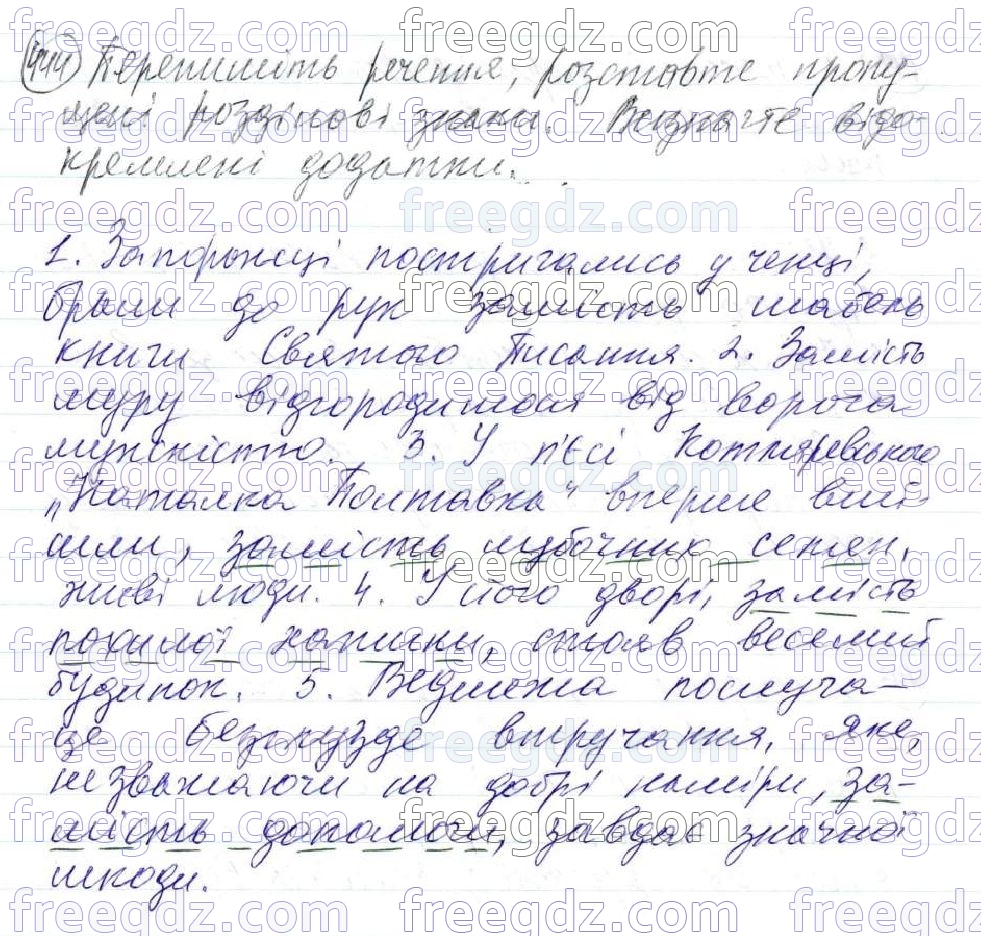 444 Перепишіть речення, розставте пропу-
щені розділові знаки. Визначте відо-
кремлені додатки.
1. Запорожці постригались у ченці,
брали до рук замість шабель
книги Святого Писання. 2. Замість
муру відгородимося від ворога
мужністю. 3. У п'єсі Котляревського
„Наталка Полтавка" вперше вий-
шли, замість лубочних сцен,
живі люди. 4. У його дворі, замість
похилої хатинки, стояв веселий
будинок. 5. Ведмежа послуга -
це безглузде втручання, яке,
незважаючи на добрі наміри, за-
мість допомоги, завдає значної
шкоди.